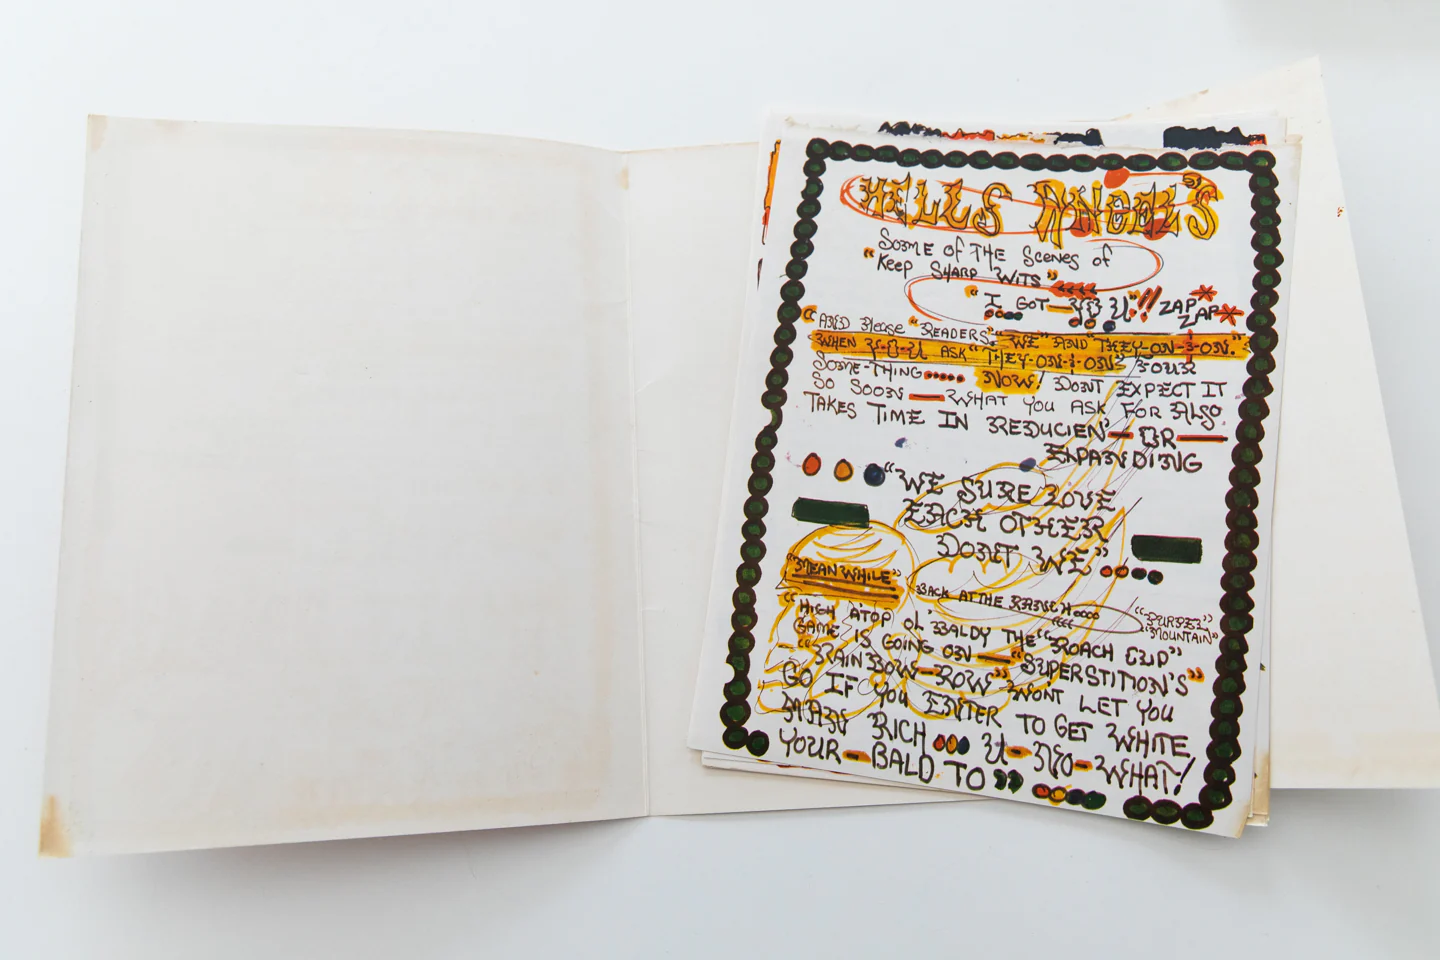 HELLS ANGEL'S
SOME OF THE SCENES OF
"KEEP SHARP WITS"
"I GOT — Y O U"!! ZAP*
ZAP*
"AND PLEASE "READERS" "WE" AND "THEY-ON-I-ON."
WHEN Y-O-U ASK "THEY-ON-I-ON" FOUR
SOME-THING..... NOW! DONT EXPECT IT
SO SOON — WHAT YOU ASK FOR ALSO
TAKES TIME IN REDUCIEN' — OR —
EXPANDING
"WE SURE LOVE
EACH OTHER
DONT WE"
"MEAN WHILE"
BACK AT THE RANCH
"PURPEL"
"MOUNTAIN"
"HIGH ATOP OL' BALDY THE "ROACH CLIP"
GAME IS GOING ON — "SUPERSTITION'S"
"RAIN BOW-ROW" WON'T LET YOU
GO IF YOU ENTER TO GET WHITE
MAN RICH U-NO-WHAT!
YOUR - BALD TO"